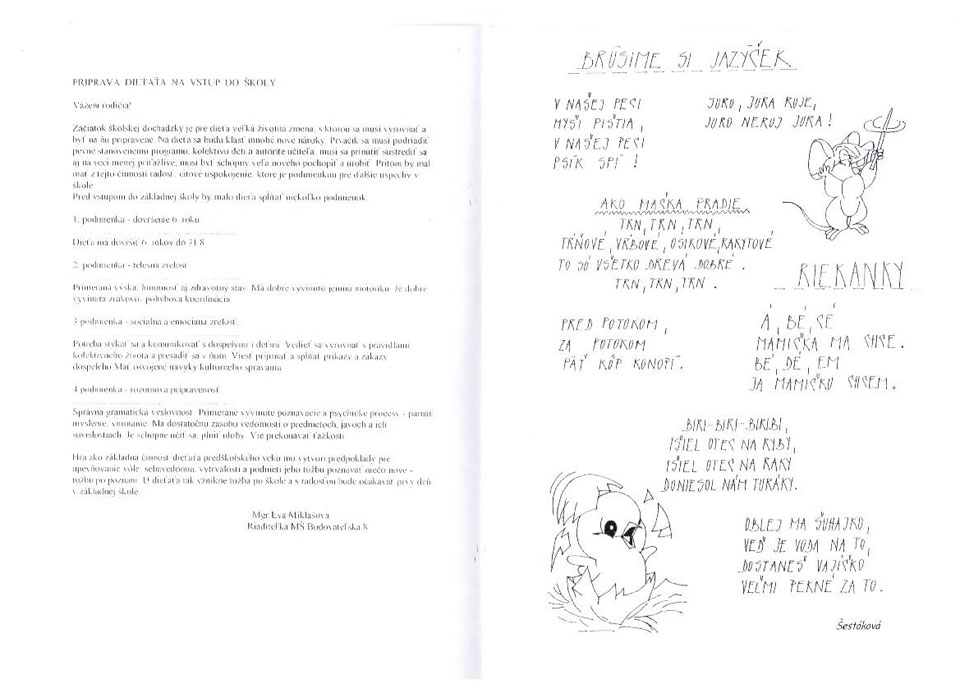 PRÍPRAVA DIEŤAŤA NA VSTUP DO ŠKOLY
Vážení rodičia!
Začiatok školskej dochádzky je pre dieťa veľká životná zmena, s ktorou sa musí vyrovnať a
byť na ňu pripravené. Na dieťa sa budú klásť mnohé nové nároky. Prváčik sa musí podriadiť
pevne stanovenému programu, kolektívu detí a autorite učiteľa, musí sa prinútiť sústrediť sa
aj na veci menej príťažlivé, musí byť schopný veľa nového pochopiť a urobiť. Pritom by mal
mať z tejto činnosti radosť, citové uspokojenie, ktoré je podmienkou pre ďalšie úspechy v
škole.
Pred vstupom do základnej školy by malo dieťa spĺňať niekoľko podmienok.
1. podmienka - dovŕšenie 6. roku
Dieťa má dovŕšiť 6. rokov do 31.8.
2. podmienka - telesná zrelosť
Primeraná výška, hmotnosť aj zdravotný stav. Má dobre vyvinutú jemnú motoriku. Je dobre
vyvinutá zrakovo- pohybová koordinácia.
3 podmienka - sociálna a emociána zrelosť.
Potreba stýkať sa a komunikovať s dospelými i deťmi. Vedieť sa vyrovnať s pravidlami
kolektívneho života a presadiť sa v ňom. Vieť prijímať a spĺňať príkazy a zákazy
dospelého. Mať osvojené návyky kultúrneho správania.
4.podmienka - rozumová pripravenosť
Správna gramatická výslovnosť. Primerane vyvinuté poznávacie a psychické procesy - pamäť,
myslenie, vnímanie. Má dostatočnú zásobu vedomostí o predmetoch, javoch a ich
súvislostiach. Je schopné učiť sa, plniť úlohy. Vie prekonávať ťažkosti.
Hra ako základná činnosť dieťaťa predškolského veku mu vytvorí predpoklady pre
upevňovanie vôle, sebavedomia, vytrvalosti a podnieti jeho túžbu poznávať niečo nové -
túžbu po poznaní. U dieťaťa tak vznikne túžba po škole a s radosťou bude očakávať prvý deň
v základnej škole.
Mgr Eva Miklašová
Riaditeľka MŠ Budovateľská 8
BRÚSIME SI JAZÝČEK
V NAŠEJ PECI
MYŠI PIŠTIA,
V NAŠEJ PECI
PSÍK SPÍ !
JURO, JURA KUJE,
JURO NEKUJ JURA !
AKO MAČKA PRADIE
TRN, TRN, TRN,
TŔŇOVÉ, VŔBOVÉ, OSIKOVÉ, RAKYTOVÉ
TO SÚ VŠETKO DREVÁ DOBRÉ.
TRN, TRN, TRN.
RIEKANKY
PRED POTOKOM,
ZA POTOKOM
PÄŤ KÔP KONOPÍ.
Á, BÉ, CÉ
MAMIČKA MA CHCE.
BÉ, DÉ, EM
JA MAMIČKU CHCEM.
BIRI-BIRI-BIRIBI,
IŠIEL OTEC NA RYBY,
IŠIEL OTEC NA RAKY
DONIESOL NÁM TURÁKY.
OBLEJ MA ŠUHAJKO,
VEĎ JE VODA NA TO,
DOSTANEŠ VAJÍČKO
VEĽMI PEKNÉ ZA TO.
Šestáková